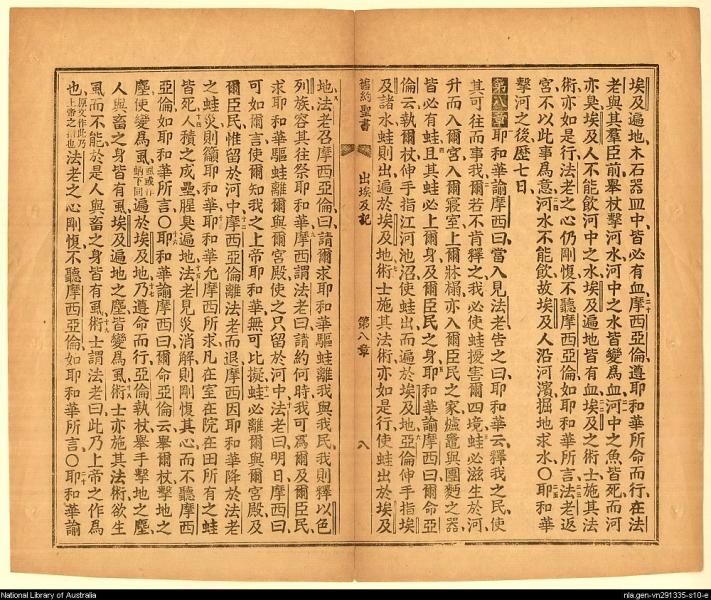 埃及遍地、木石器皿中皆必有血、二十摩西亞倫遵耶和華所命而行、在法
老與其羣臣前、舉杖擊河水、河中之水皆變爲血、二一河中之魚皆死、而河
亦臭、埃及人不能飲河中之水、埃及遍地皆有血、二二埃及之術士施其法
術亦如是行、法老之心仍剛愎不聽摩西亞倫、如耶和華所言、二三法老返
宮、不以此事爲意、二四河水不能飲、故埃及人沿河濱掘地求水、〇二五耶和華
擊河之後、歷七日、
第八章 耶和華諭摩西曰、當入見法老、告之曰、耶和華云、釋我之民、使
其可往而事我、二爾若不肯釋之、我必使蛙擾害爾四境、三蛙必滋生於河、
升而入爾宮、入爾寢室、上爾牀榻、亦入爾臣民之家、爐竈與團麪之器、
皆必有蛙、四且其蛙必上爾身、及爾臣民之身、五耶和華諭摩西曰、爾命亞
倫云、執爾杖伸手指江河池沼、使蛙出而遍於埃及地、六亞倫伸手指埃
及諸水、蛙則出遍於埃及地、七術士施其法術亦如是行、使蛙出於埃及
舊約聖書 出埃及記 第八章 八
地、八法老召摩西亞倫曰、請爾求耶和華驅蛙離我與我民、我則釋以色
列族、容其往祭耶和華、九摩西謂法老曰、請約何時、我可爲爾及爾臣民
求耶和華驅蛙離爾與爾宮殿、使之只留於河中、十法老曰、明日、摩西曰、
可如爾言、使爾知我之上帝耶和華無可比擬、十一蛙必離爾與爾宮殿及
爾臣民、惟留於河中、十二摩西亞倫離法老而退、摩西因耶和華降於法老
之蛙災、則籲耶和華、十三耶和華允摩西所求、凡在室在院在田所有之蛙
皆死、十四人積之成壘、腥臭遍地、十五法老見災消解、則剛愎其心、而不聽摩西
亞倫、如耶和華所言、〇十六耶和華諭摩西曰、爾命亞倫云、舉爾杖擊地之
塵、使變爲虱、虱或作蚋下同遍於埃及地、十七乃遵命而行、亞倫執杖舉手擊地之塵、
人與畜之身皆有虱、埃及遍地之塵皆變爲虱、十八術士亦施其法術、欲生
虱而不能、於是人與畜之身皆有虱、十九術士謂法老曰、此乃上帝之作爲
也、原文作此乃上帝之指也法老之心剛愎不聽摩西亞倫、如耶和華所言、〇二十耶和華諭
National Library of Australia
nla.gen-vn291335-s10-e